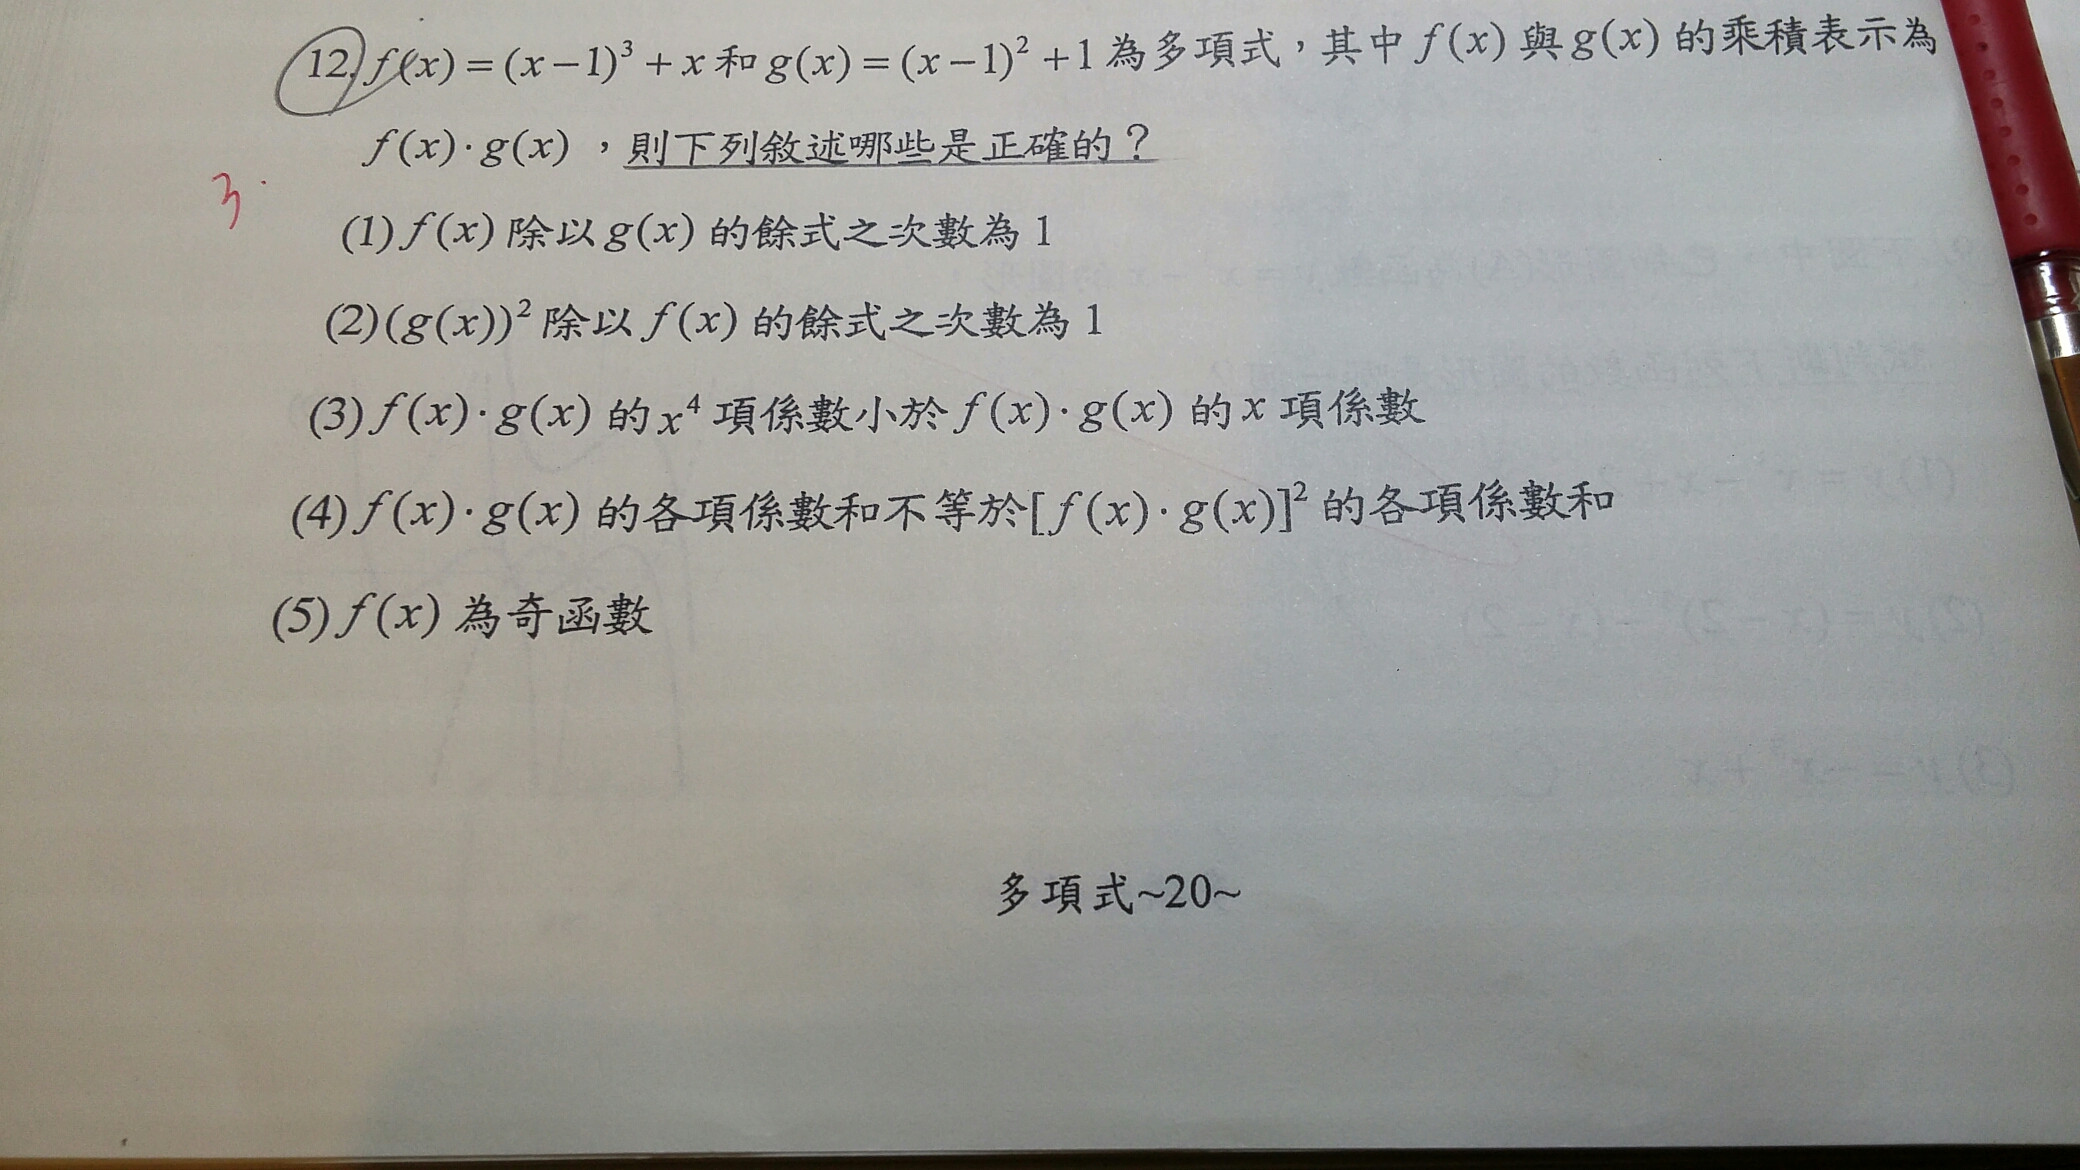 12. f(x)=(x-1)³+x和g(x)=(x-1)²+1為多項式，其中f(x)與g(x)的乘積表示為
f(x)·g(x)，則下列敘述哪些是正確的？
3.
(1) f(x)除以g(x)的餘式之次數為1
(2)(g(x))²除以f(x)的餘式之次數為1
(3) f(x)·g(x)的x⁴項係數小於f(x)·g(x)的x項係數
(4) f(x)·g(x)的各項係數和不等於[f(x)·g(x)]²的各項係數和
(5) f(x)為奇函數
多項式~20~